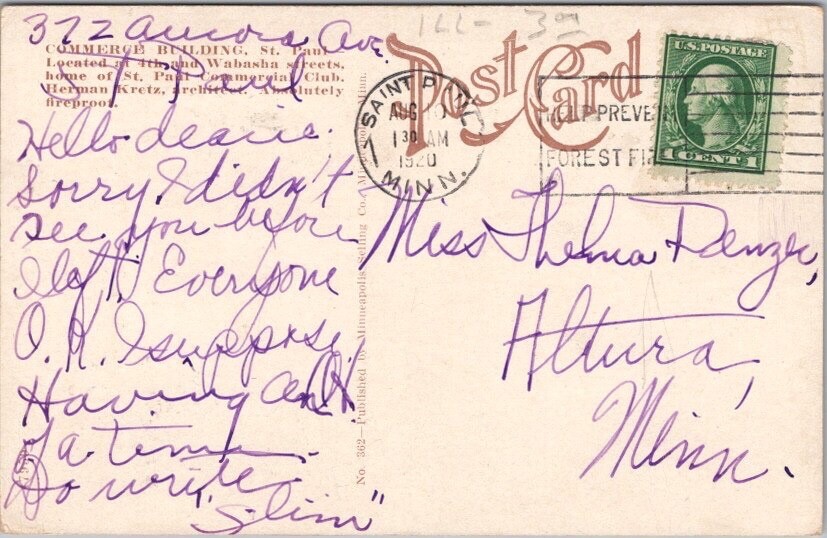 372 Aurora Ave.
St Paul
COMMERCE BUILDING, St. Paul
Located at 4th and Wabasha streets,
home of St. Paul Commercial Club.
Herman Kretz, architect. Absolutely
fireproof.
Hello dearie.
Sorry I didn't
see you before
I left. Everyone
O.K. I suppose.
Having an O.K.
time.
Do write.
"Slim"
No. 362—Published by Minneapolis Selling Co., Minneapolis, Minn.
ILL- 3
Post Card
SAINT PAUL
AUG
1 30 AM
1920
MINN.
HELP PREVENT
FOREST FI
U.S. POSTAGE
1 CENT 1
Miss Thelma Denzer,
Altura,
Minn.